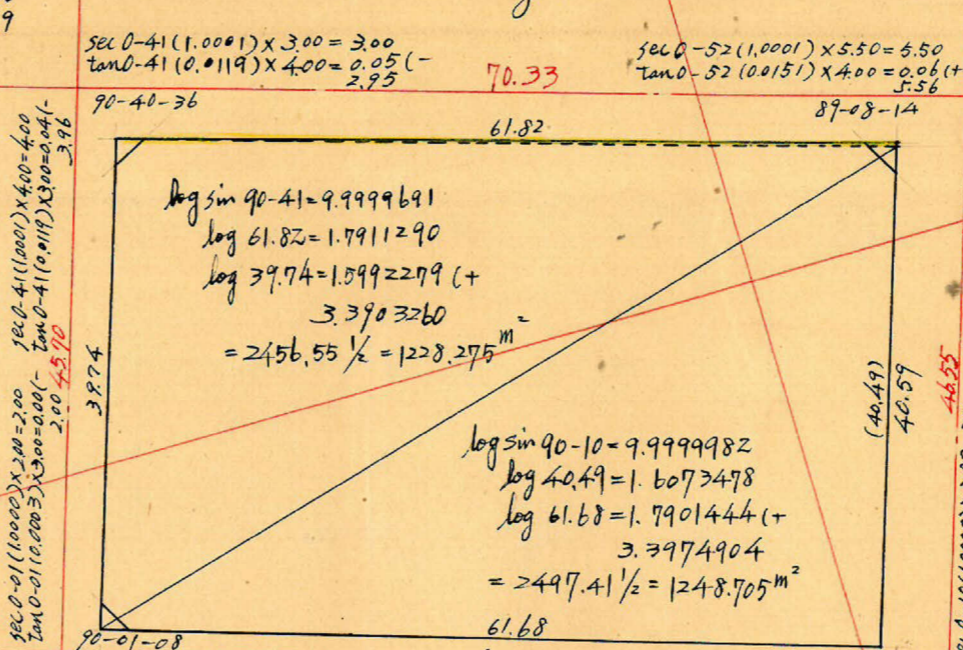 9
sec 0-41 (1.0001) × 3.00 = 3.00
tan 0-41 (0.0119) × 4.00 = 0.05 (-
2.95
70.33
sec 0-52 (1.0001) × 5.50 = 5.50
tan 0-52 (0.0151) × 4.00 = 0.06 (+
5.56
90-40-36
61.82
89-08-14
sec 0-41 (1.0001) × 4.00 = 4.00
tan 0-41 (0.0119) × 3.00 = 0.04 (-
3.96
45.70
39.74
sec 0-01 (1.0000) × 2.00 = 2.00
tan 0-01 (0.0003) × 3.00 = 0.00 (-
2.00
log sin 90-41 = 9.9999691
log 61.82 = 1.7911290
log 39.74 = 1.5992279 (+
3.3903260
= 2456.55 ½ = 1228.275 m²
(40.49)
40.59
46.55
log sin 90-10 = 9.9999982
log 40.49 = 1.6073478
log 61.68 = 1.7901444 (+
3.3974904
= 2497.41 ½ = 1248.705 m²
61.68
90-01-08